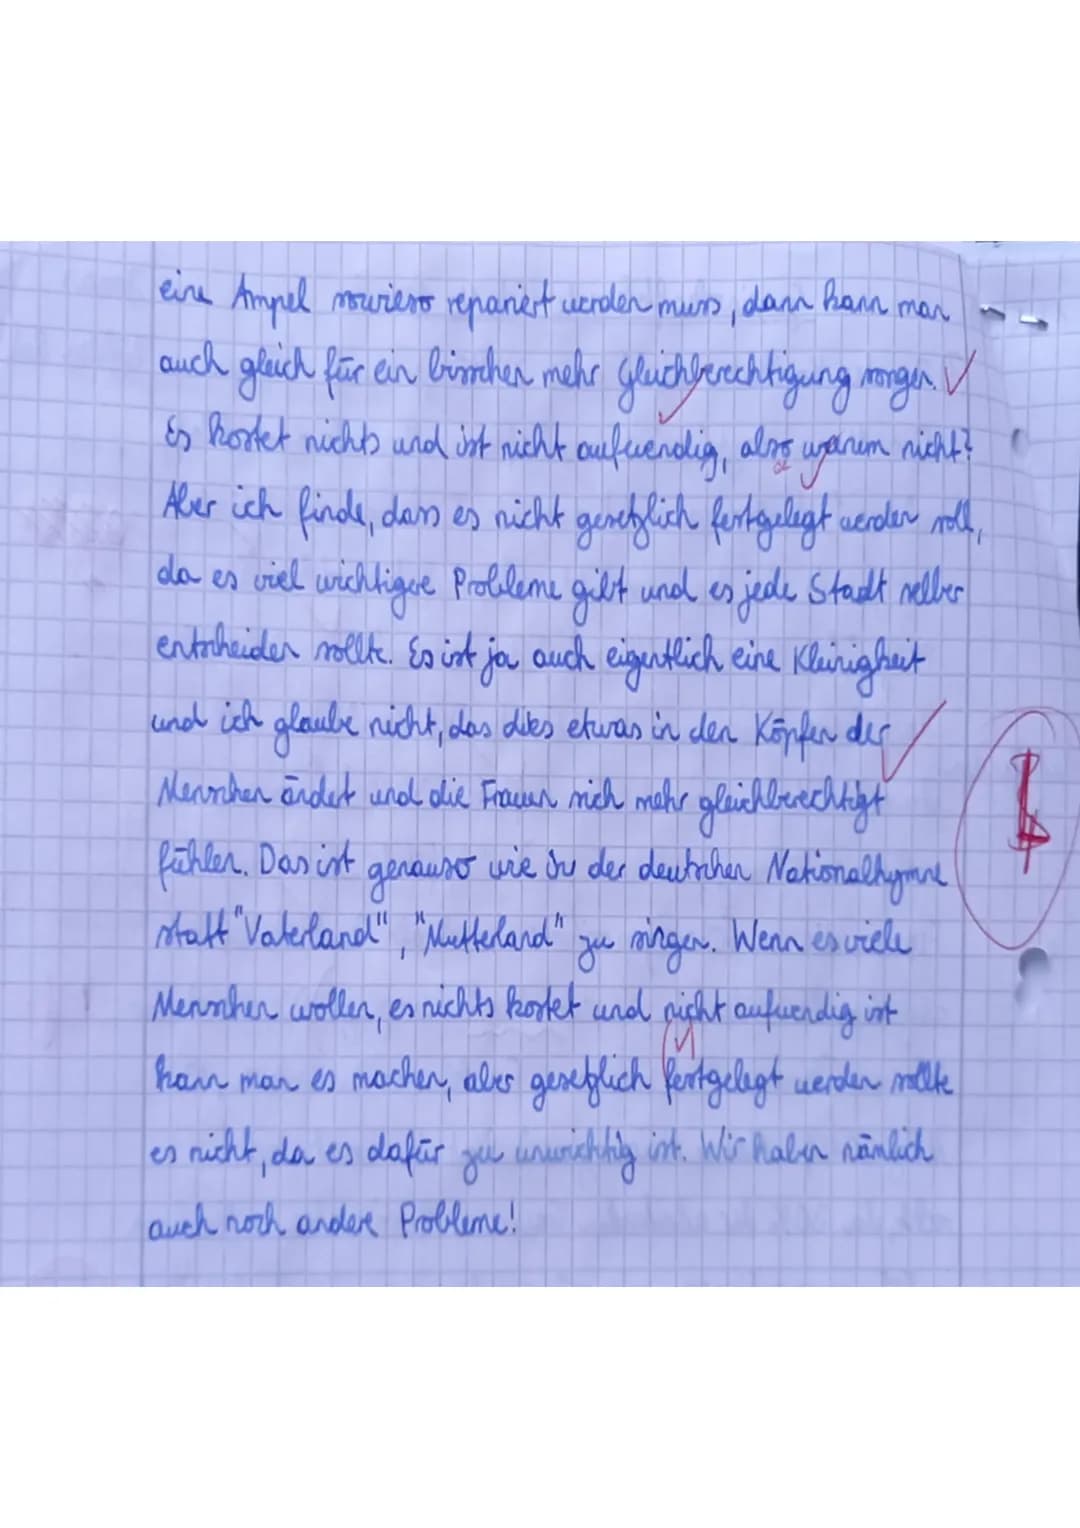 eine Ampel sowieso repariert werden muss, dann kann man
auch gleich für ein bisschen mehr Gleichberechtigung sorgen.
Es kostet nichts und ist nicht aufwendig, also warum nicht?
Aber ich finde, dass es nicht gesetzlich festgelegt werden soll,
da es viel wichtigere Probleme gibt und es jede Stadt selber
entscheiden sollte. Es ist ja auch eigentlich eine Kleinigkeit
und ich glaube nicht, das dies etwas in den Köpfen der
Menschen ändert und die Frauen sich mehr gleichberechtigt
fühlen. Das ist genauso wie in der deutschen Nationalhymne
statt "Vaterland", "Mutterland" zu singen. Wenn es viele
Menschen wollen, es nichts kostet und nicht aufwendig ist
kann man es machen, aber gesetzlich festgelegt werden sollte
es nicht, da es dafür zu unwichtig ist. Wir haben nämlich
auch noch andere Probleme!